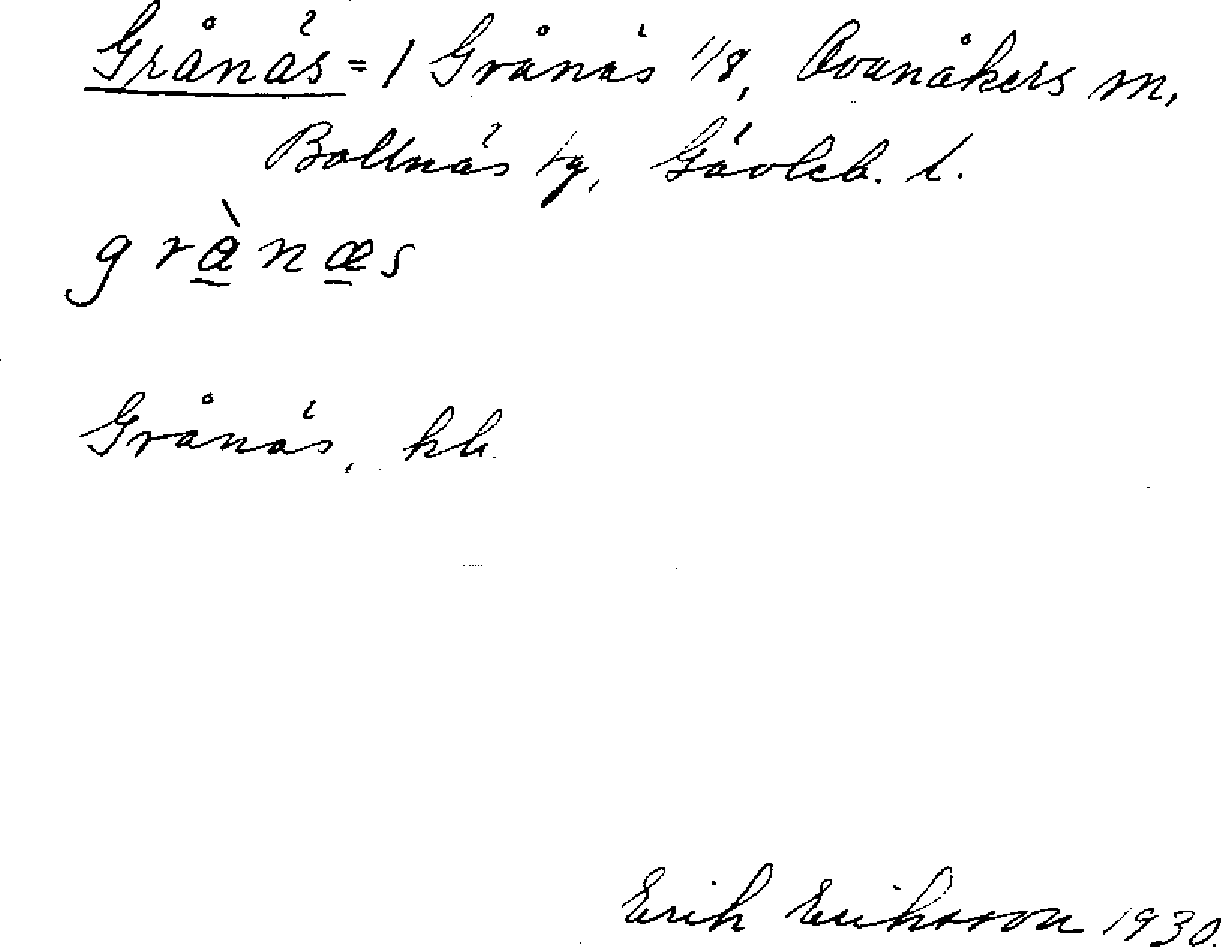 Grånäs = 1 Grånäs 1/8, Ovanåkers m,
Bollnäs tg, Gävleb. l.
grànæs
Grånäs, hh.
Erik Eriksson 1930.